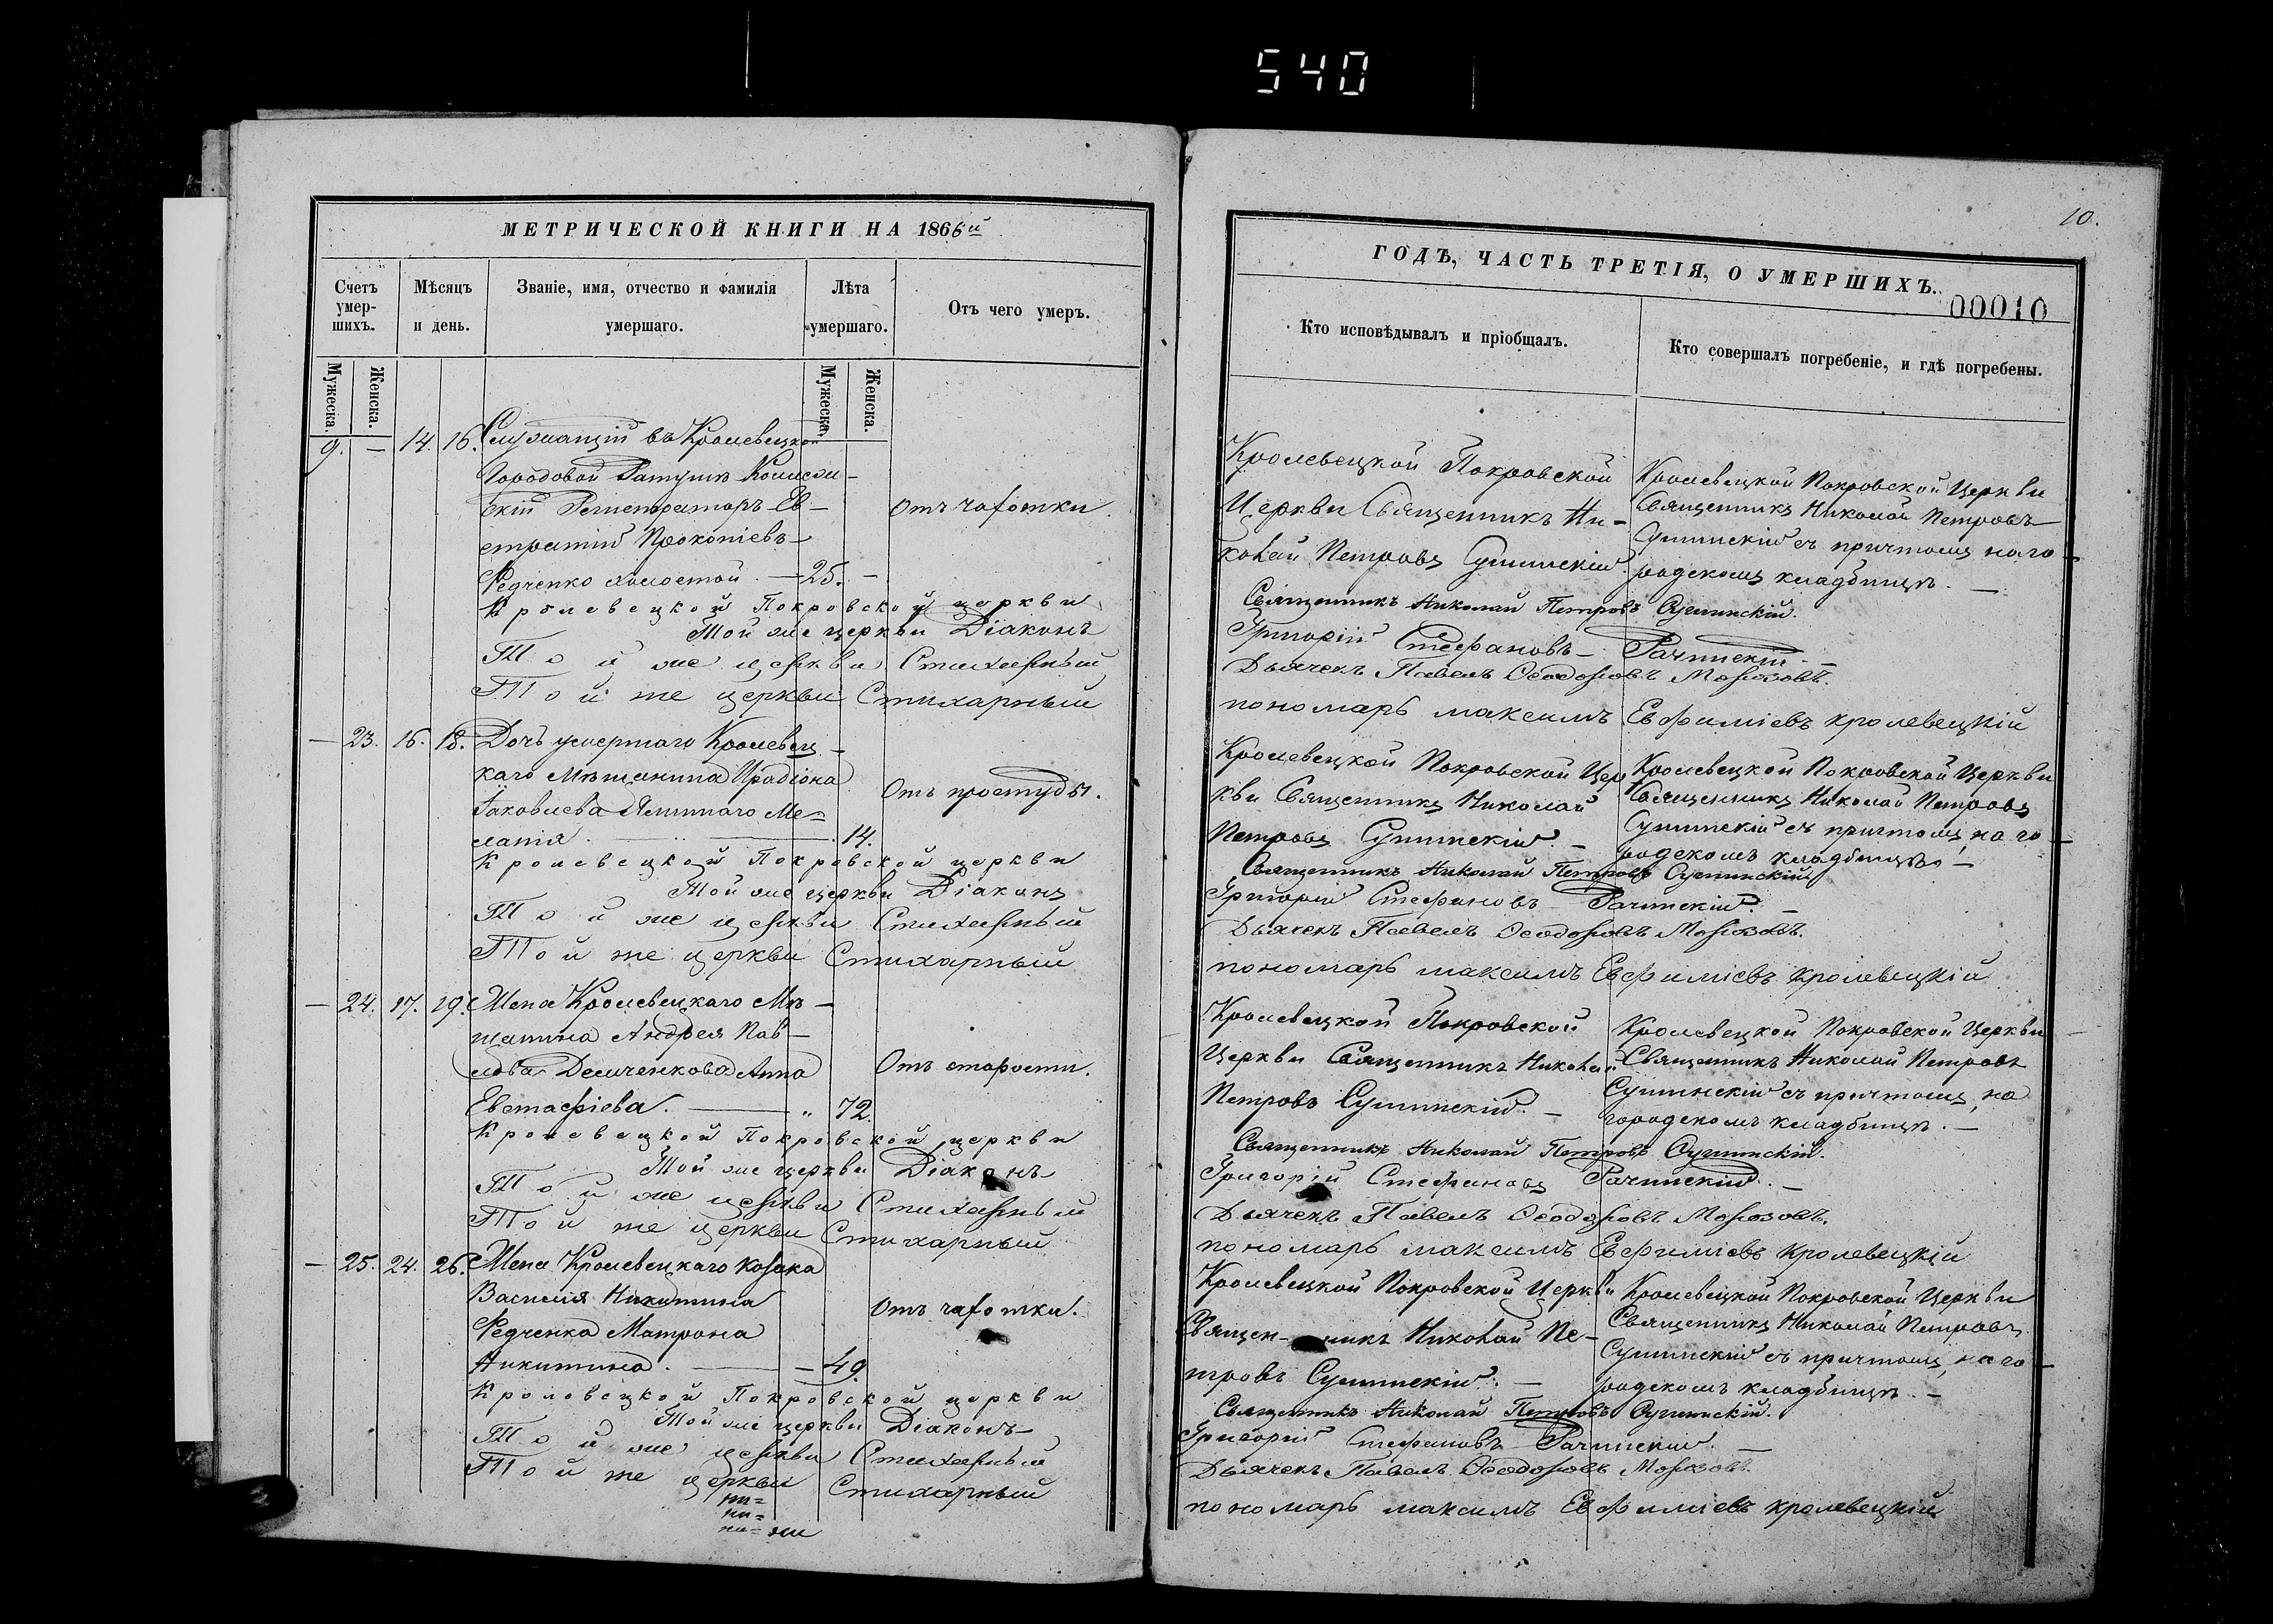 540
МЕТРИЧЕСКОЙ КНИГИ НА 1866й
Счетъ умер-шихъ.
Мѣсяцъ и день.
Званіе, имя, отчество и фамилія умершаго.
Лѣта умершаго.
Отъ чего умеръ.
Мужеска.
Женска.
Мужеска.
Женска.
9. — 14. 16. Служащій въ Кролевецкой
Городовой Ратушѣ Коллежс-
кій Регистраторъ Ев-
стратій Прокопіевъ
Редченко холостой. — 25. —
отъ чахотки.
Кролевецкой Покровской церкви
Той же церкви Діаконъ
Той же церкви Стихарный
Той же церкви Стихарный
— 23. 16. 18. Дочь умершаго Кролевец-
каго Мѣщанина Иродіона
Іаковлева Ме-
ланія. — 14.
Отъ простуды.
Кролевецкой Покровской церкви
Той же церкви Діаконъ
Той же церкви Стихарный
Той же церкви Стихарный
— 24. 17. 19. Жена Кролевецкаго Мѣ-
щанина Андрея Пав-
лова Демченкова Анна
Евстафіева. — „ 72.
Отъ старости.
Кролевецкой Покровской церкви
Той же церкви Діаконъ
Той же церкви Стихарный
Той же церкви Стихарный
— 25. 24. 26. Жена Кролевецкаго Козака
Василія Никитина
Редченка Матрона
Никитина. — 49.
Отъ чахотки.
Кролевецкой Покровской церкви
Той же церкви Діаконъ
Той же церкви Стихарный
Той же церкви Стихарный
10.
ГОДЪ, ЧАСТЬ ТРЕТІЯ, О УМЕРШИХЪ.
00010
Кто исповѣдывалъ и пріобщалъ.
Кто совершалъ погребеніе, и гдѣ погребены.
Кролевецкой Покровской
Церкви Священникъ Ни-
колай Петровъ Сушинскій.
Кролевецкой Покровской Церкви
Священникъ Николай Петровъ
Сушинскій съ причтомъ на го-
родскомъ кладбищѣ. —
Священникъ Николай Петровъ Сушинскій.
Григорій Стефановъ Рачинскій. —
Дьячекъ Павелъ Ѳеодоровъ Морозовъ.
пономарь максимъ Евфиміевъ кролевецкій
Кролевецкой Покровской Цер
кви Священникъ Николай
Петровъ Сушинскій. —
Кролевецкой Покровской Церкви
Священникъ Николай Петровъ
Сушинскій съ причтомъ, на го-
родскомъ кладбищѣ. —
Священникъ Николай Петровъ Сушинскій
Григорій Стефановъ Рачинскій. —
Дьячекъ Павелъ Ѳеодоровъ Морозовъ.
пономарь максимъ Евфиміевъ кролевецкій
Кролевецкой Покровской
Церкви Священникъ Николай
Петровъ Сушинскій. —
Кролевецкой Покровской Церкви
Священникъ Николай Петровъ
Сушинскій съ причтомъ, на
городскомъ кладбищѣ. —
Священникъ Николай Петровъ Сушинскій.
Григорій Стефановъ Рачинскій. —
Дьячекъ Павелъ Ѳеодоровъ Морозовъ.
пономарь максимъ Евфиміевъ кролевецкій
Кролевецкой Покровской Церкви
Священ- никъ Николай Пе-
тровъ Сушинскій. —
Кролевецкой Покровской Церкви
Священникъ Николай Петровъ
Сушинскій съ причтомъ, на го-
родскомъ кладбищѣ. —
Священникъ Николай Петровъ Сушинскій.
Григорій Стефановъ Рачинскій. —
Дьячекъ Павелъ Ѳеодоровъ Морозовъ.
пономарь максимъ Евфиміевъ кролевецкій